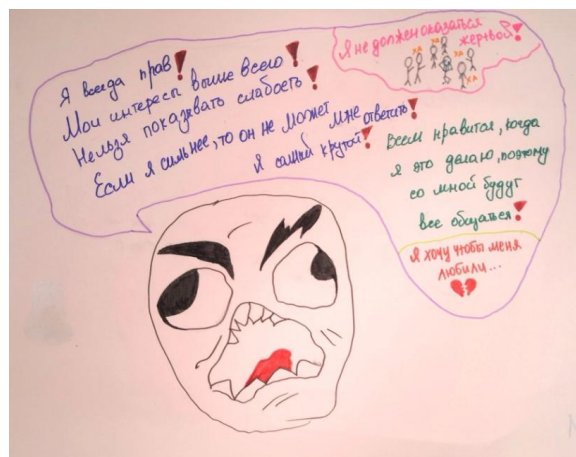 Я всегда прав!
Мои интересы выше всего!
Нельзя показывать слабость!
Если я сильнее, то он не может
мне ответить!
Я самый крутой!
Я не должен оказаться
жертвой!
ха
ха
ха
ха
Всем нравится, когда
я это делаю, поэтому
со мной будут
все общаться!
Я хочу чтобы меня
любили...